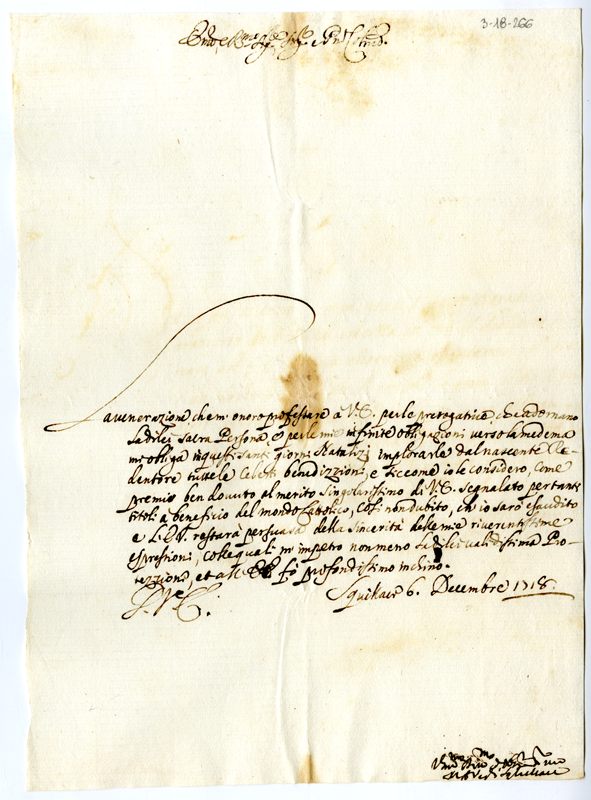 3-18-266
La venerazione che m'onoro professare à V.E. per le prerogative, che adornano
la di lei Sacra Persona, e per le mie infinite obligazioni verso la medema
m'obliga in questi Santi giorni Natalizi implorarle dal nascente Re-
dentore tutte le Celesti benedizzioni, e siccome io le considero, come
premio ben dovuto al merito singolarissimo di V.E. segnalato per tanti
titoli a beneficio del mondo Cattolico, così non dubito, ch'io sarò esaudito
e L'E.V. restarà persuasa della sincerità delle mie riverentissime
espressioni, colle quali m'impetro non meno la di lei validissima Pro-
tezzione, et a V.E. fò profondissimo inchino.
Di V.E.
Squillace 6. Decembre 1718.